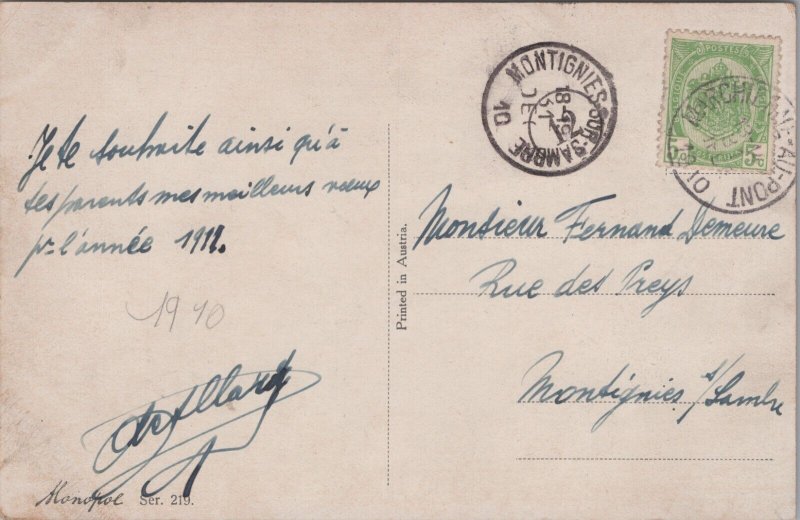 Je te souhaite ainsi qu'à
tes parents mes meilleurs vœux
pr l'année 1911.
1910
Monopol Ser. 219.
Printed in Austria.
MONTIGNIES-SUR-SAMBRE
18-19
DEC
10
POSTES
5c 5c
MARCHIENNE-AU-PONT
10
Monsieur Fernand Demeure
Rue des Preys
Montignies s/Sambre